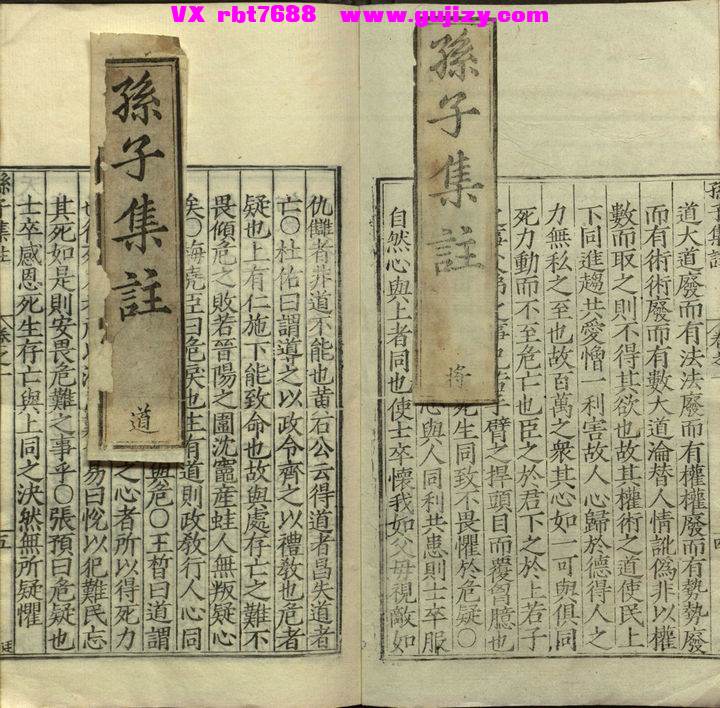 VX rbt7688 www.gujizy.com
孫子集註
將
孫子集註
道
道大道廢而有法法廢而有權權廢而有勢勢廢
而有術術廢而有數大道淪替人情訛僞非以權
數而取之則不得其欲也故其權術之道使民上
下同進趨共愛憎一利害故人心歸於德得人之
力無私之至也故百萬之衆其心如一可與俱同
死力動而不至危亡也臣之於君下之於上若子
臂之捍頭目而覆胷臆也
死生同致不畏懼於危疑〇
心與人同利共患則士卒服
自然心與上者同也使士卒懷我如父母視敵如
仇讎者非道不能也黄石公云得道者昌失道者
亡〇杜佑曰謂導之以政令齊之以禮教也危者
疑也上有仁施下能致命也故與處存亡之難不
畏傾危之敗若晉陽之圍沈竈産蛙人無叛疑心
矣〇梅堯臣曰危戾也主有道則政教行人心同
與危〇王晳曰道謂
之心者所以得死力
易曰悅以犯難民忘
其死如是則安畏危難之事乎〇張預曰危疑也
士卒感恩死生存亡與上同之決然無所疑懼
孫子集註 卷之一 五